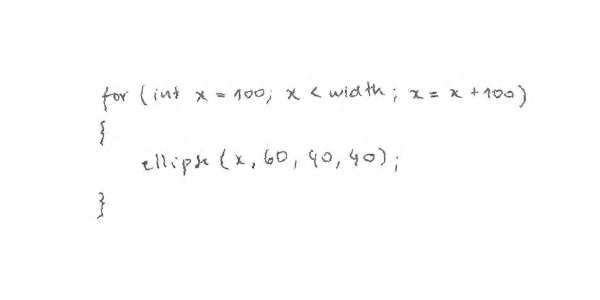 for (int x = 100; x < width; x = x + 100)
{
ellipse (x, 60, 40, 40);
}